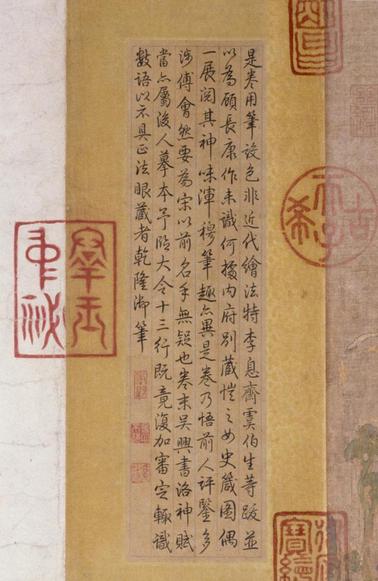 是卷用筆設色非近代繪法特李息齋虞伯生等跋並
以為顧長康作未識何據內府別藏愷之女史箴圖偶
一展閱其神味渾穆筆趣亦異是卷乃悟前人評鑒多
涉傅會然要為宋以前名手無疑也卷末吳興書洛神賦
當亦屬後人摹本予臨大令十三行既竟復加審定輒識
數語以示具正法眼藏者乾隆御筆
古希天子